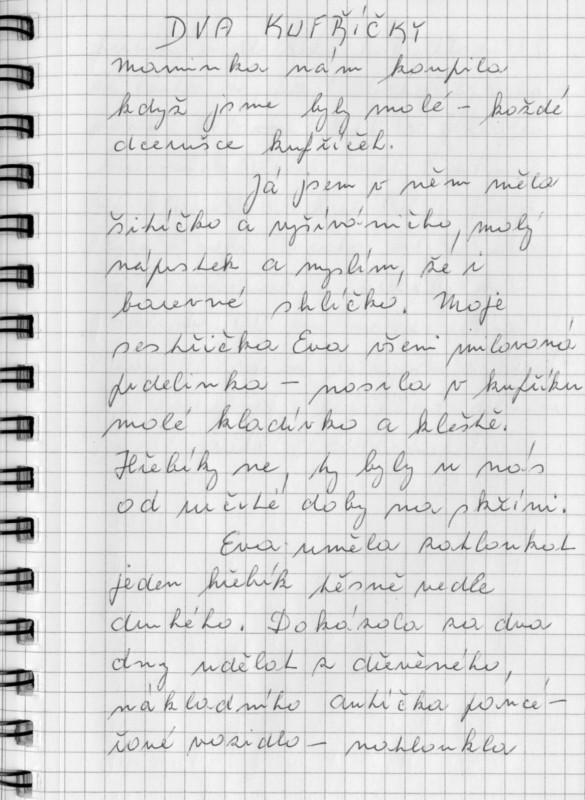 DVA KUFŘÍČKY
Maminka nám koupila
když jsme byly malé – každé
dcerušce kufříček.
Já jsem v něm měla
šitíčko a vyšíváníčko, malý
náprstek a myslím, že i
barevné sklíčko. Moje
sestřička Eva všemi milovaná
fidelinka – nosila v kufříku
malé kladívko a kleště.
Hřebíky ne, ty byly u nás
od určité doby na skříni.
Eva uměla zatloukat
jeden hřebík těsně vedle
druhého. Dokázala za dva
dny udělat z dřevěného,
nákladního autíčka pancé–
řové vozidlo – natloukla